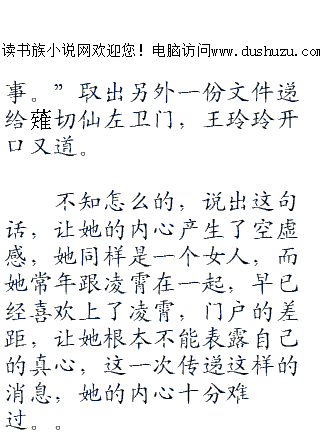 读书族小说网欢迎您！电脑访问www.dushuzu.com
事。”取出另外一份文件递
给薙切仙左卫门，王玲玲开
口又道。
不知怎么的，说出这句
话，让她的内心产生了空虚
感，她同样是一个女人，而
她常年跟凌霄在一起，早已
经喜欢上了凌霄，门户的差
距，让她根本不能表露自己
的真心，这一次传递这样的
消息，她的内心十分难
过。。